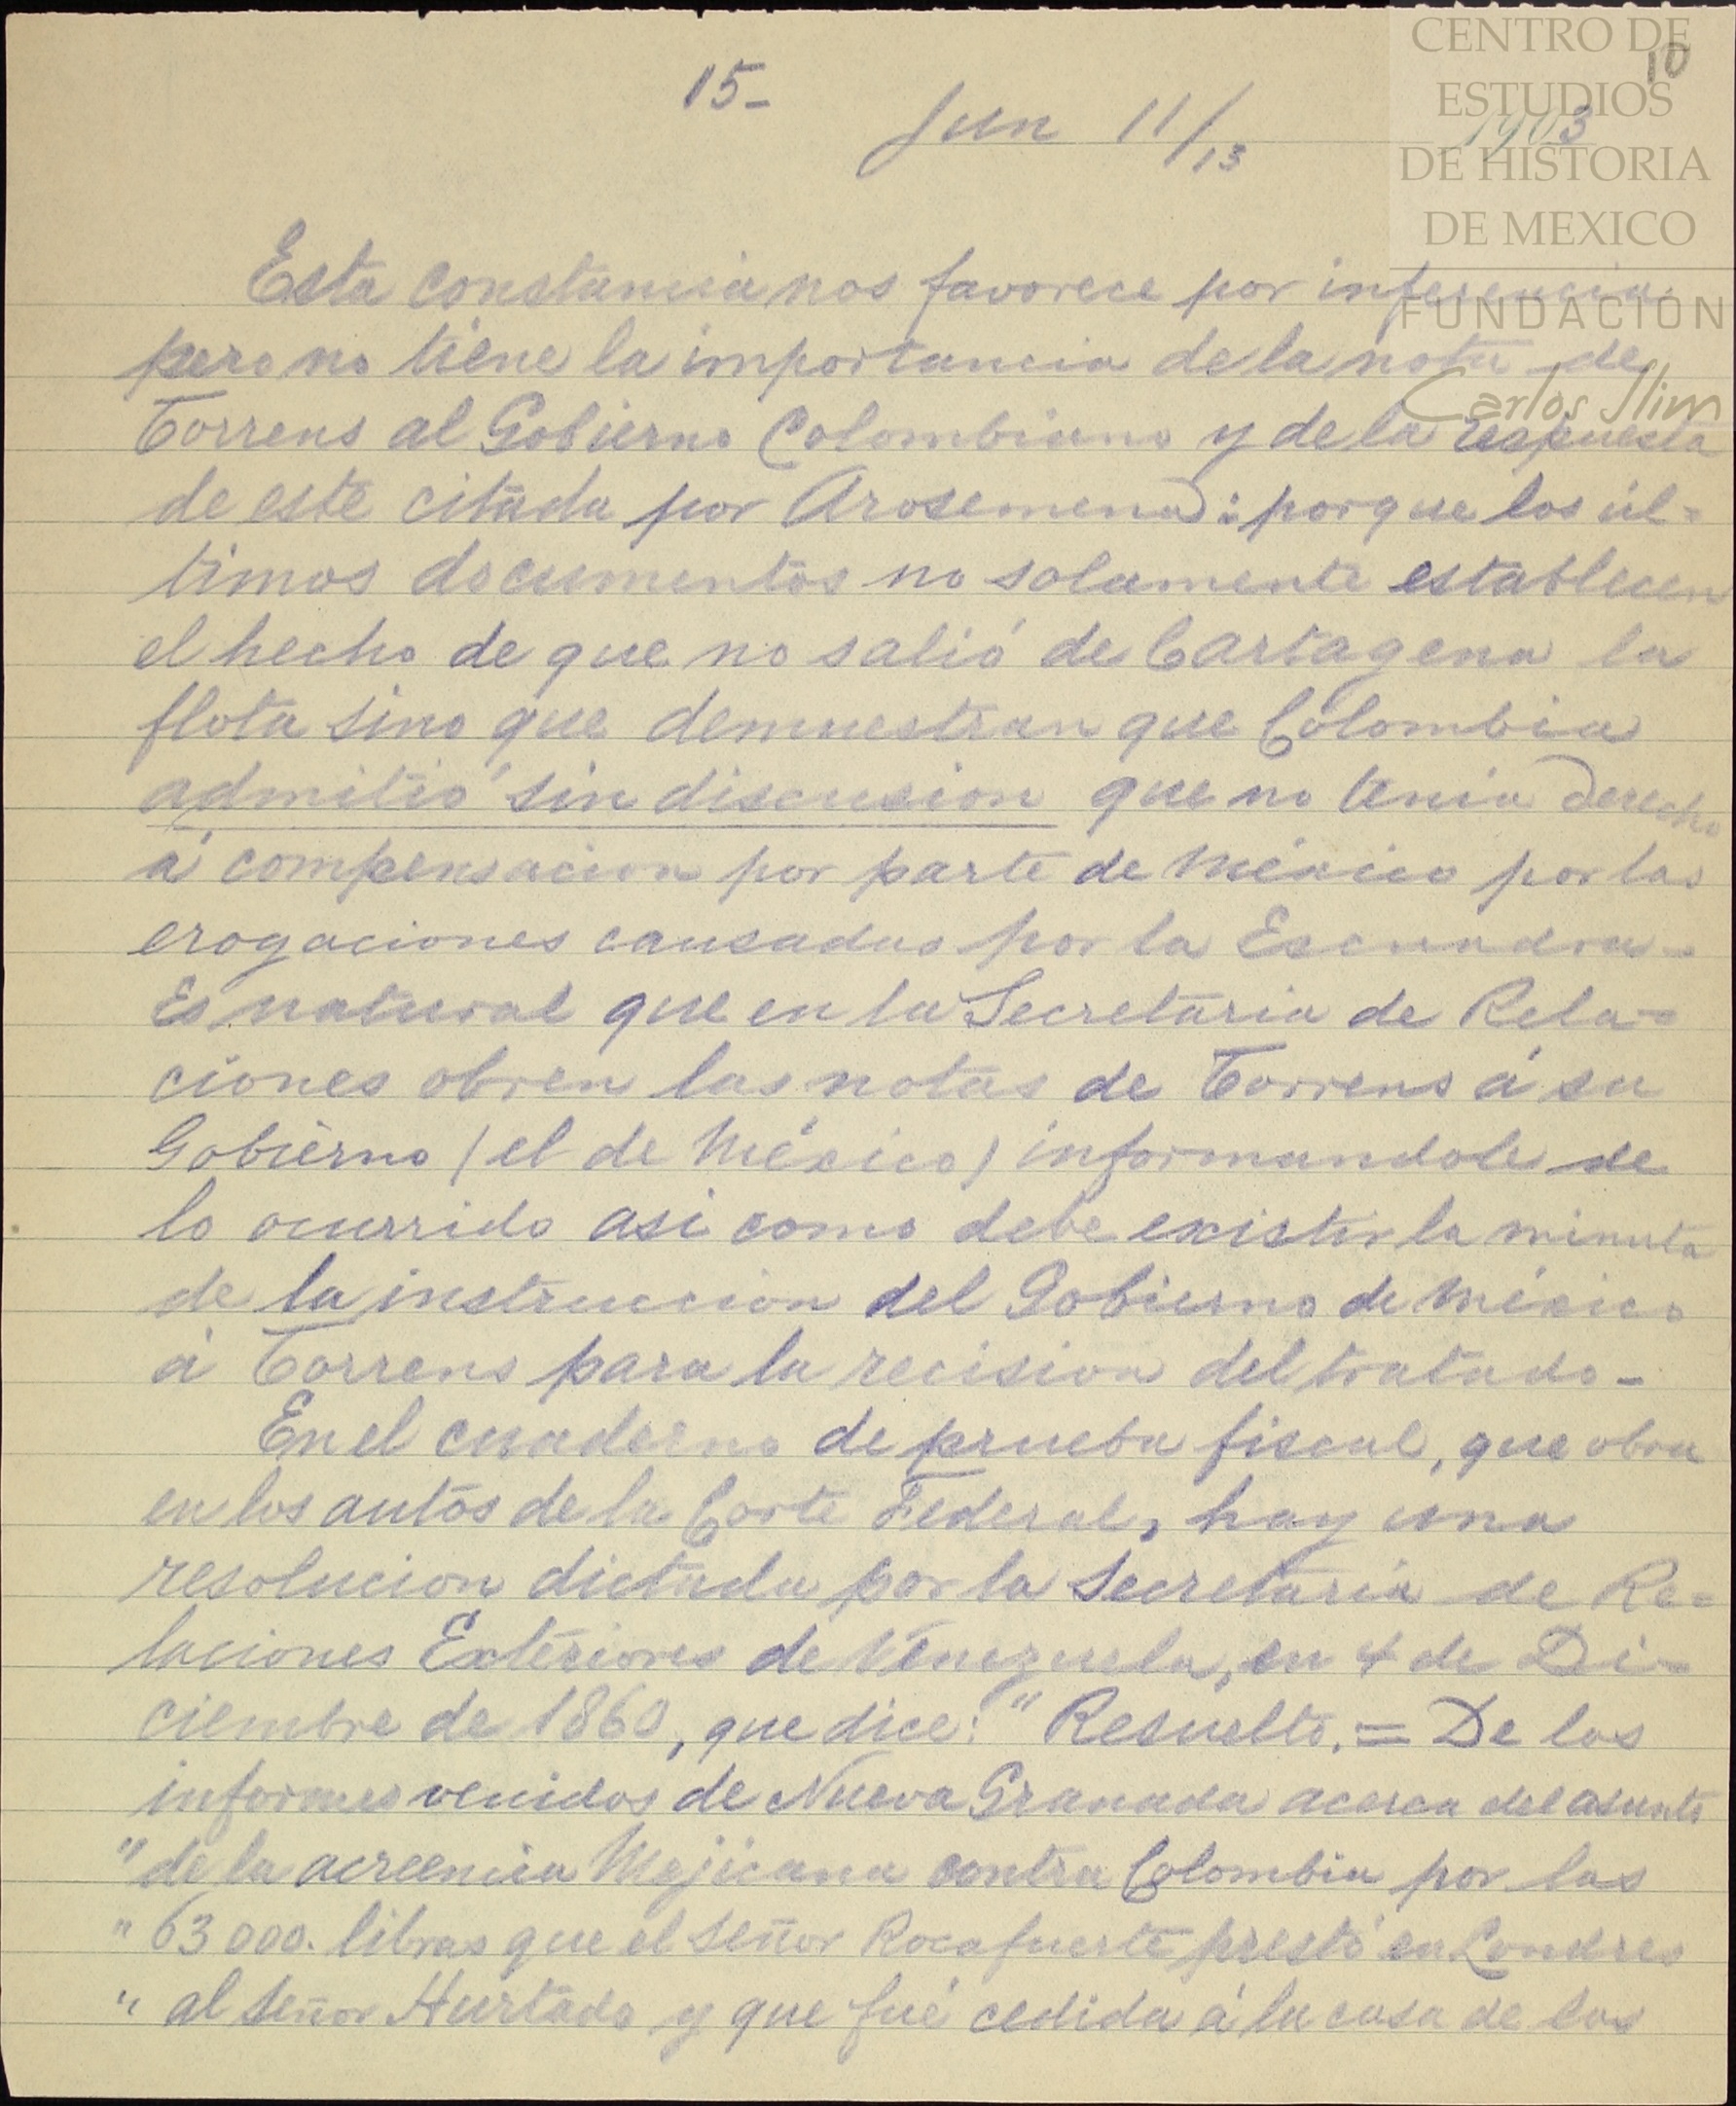 15-
10
Jun 11/13
1903
CENTRO DE
ESTUDIOS
DE HISTORIA
DE MEXICO
FUNDACIÓN
Carlos Slim
Esta constancia nos favorece por inferencia
pero no tiene la importancia de la nota de
Torrens al Gobierno Colombiano y de la respuesta
de este citada por Arosemena: porque los úl=
timos documentos no solamente establecen
el hecho de que no salió de Cartagena la
flota sino que demuestran que Colombia
admitió sin discusion que no tenia derecho
á compensacion por parte de México por las
erogaciones causadas por la Escuadra-
Es natural que en la Secretaria de Rela=
ciones obren las notas de Torrens á su
Gobierno (el de México) informandole de
lo ocurrido asi como debe existir la minuta
de la instruccion del Gobierno de México
á Torrens para la recision del tratado-
En el cuaderno de prueba fiscal, que obra
en los autos de la Corte Federal, hay una
resolucion dictada por la Secretaria de Re=
laciones Exteriores de Venezuela, en 4 de Di=
ciembre de 1860, que dice: "Resuelto. = De los
informes venidos de Nueva Granada acerca del asunto
" de la acreencia Mejicana contra Colombia por las
" 63000. libras que el señor Rocafuerte prestó en Londres
" al señor Hurtado y que fué cedida á la casa de los